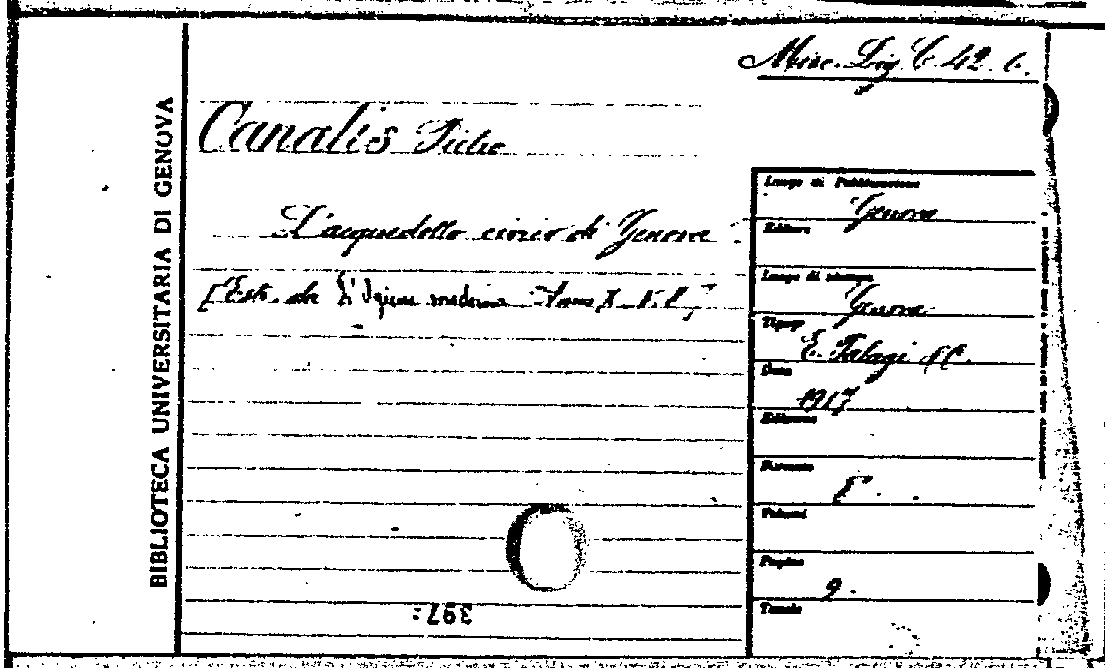 Misc. Lig. C. 42. 6.
BIBLIOTECA UNIVERSITARIA DI GENOVA
Canalis Pietro
L'acquedotto civico di Genova
[Estr. da L'Igiene moderna Anno X N.
Luogo di Pubblicazione
Genova
Editore
Luogo di stampa
Genova
Tipogr.
E. Palagi & C.
Data
1917
Edizione
Formato
8°.
Volumi
Pagine
9.
Tavole
397